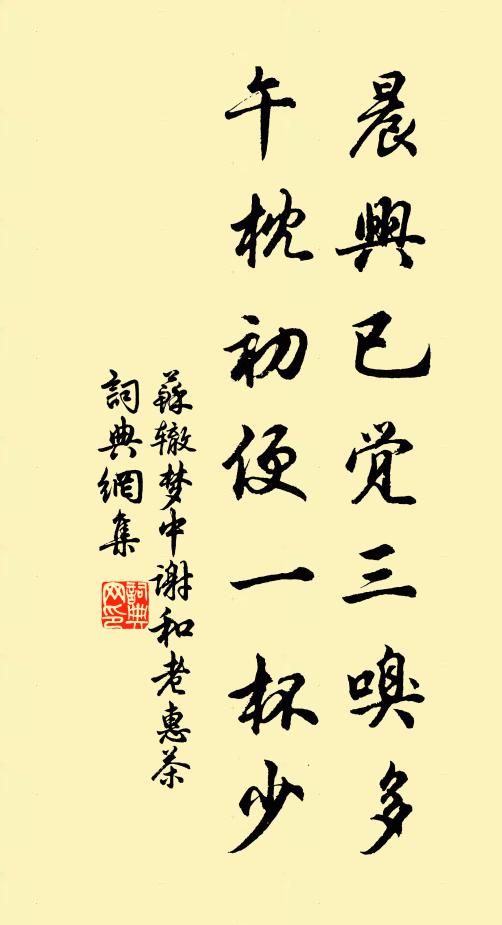 晨興已覺三嗅多
午枕初便一杯少
蘇辙梦中谢和老惠茶
詞典網集
詞典网印